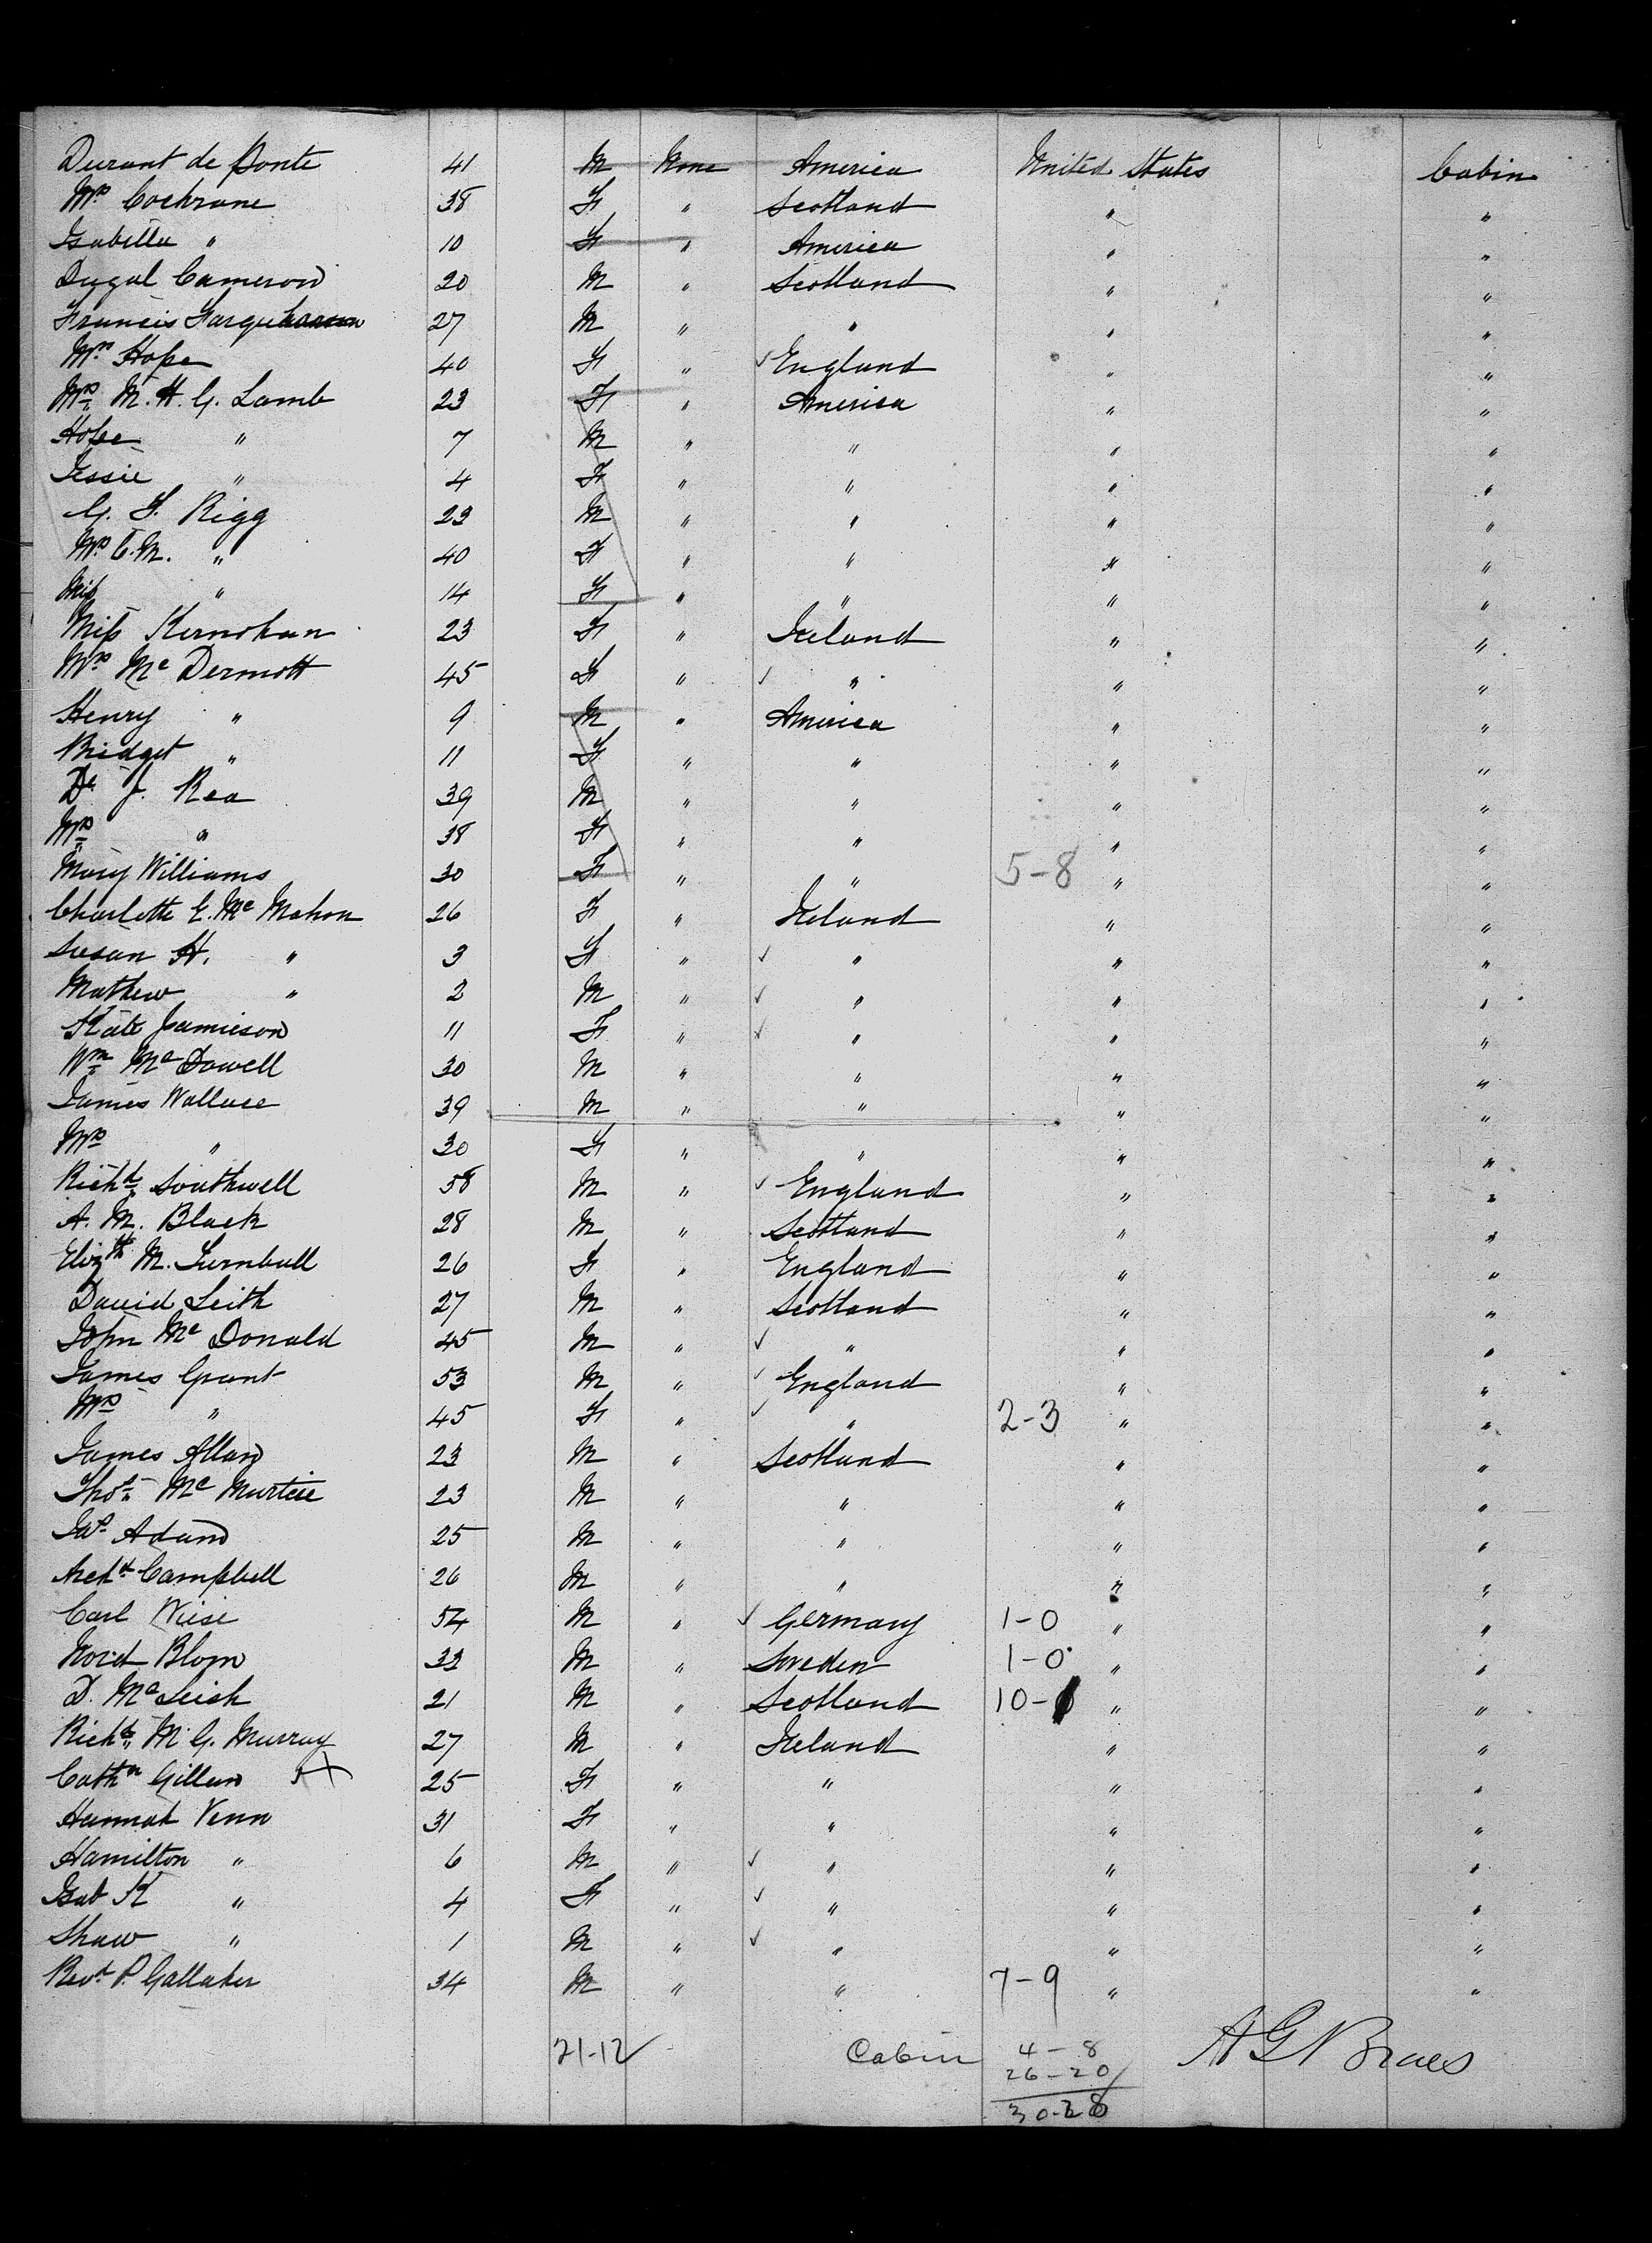 Durant de Ponte 41 M None America United States Cabin
Mrs Cochrane 38 F " Scotland " "
Isabella " 10 F " America " "
Dugal Cameron 20 M " Scotland " "
Francis Farquharson 27 M " " " "
Mrs Hope 40 F " ✓ England " "
Mrs M. H. G. Lamb 23 F " America " "
Hope " 7 M " " " "
Jessie " 4 F " " " "
G. F. Rigg 23 M " " " "
Mrs C. M. " 40 F " " " "
Miss " 14 F " " " "
Miss Kernohan 23 F " Ireland " "
Mrs Mc Dermott 45 F " ✓ " " "
Henry " 9 M " America " "
Bridget " 11 F " " " "
Dr J. Rea 39 M " " " "
Mrs " 38 F " " " "
Mary Williams 30 F " " 5-8 " "
Charlotte E. Mc Mahon 26 F " Ireland " "
Susan H. " 3 F " ✓ " " "
Mathew " 2 M " ✓ " " "
Kate Jamieson 11 F " ✓ " " "
Wm Mc Dowell 30 M " " " "
James Wallace 39 M " " " "
Mrs " 30 F " " " "
Richd Southwell 58 M " ✓ England " "
A. M. Black 28 M " Scotland " "
Elizth M. Turnbull 26 F " England " "
David Leith 27 M " Scotland " "
John Mc Donald 45 M " ✓ " " "
James Grant 53 M " ✓ England " "
Mrs " 45 F " ✓ " 2-3 " "
James Allan 23 M " Scotland " "
Thos Mc Murtrie 23 M " " " "
Jas Adam 25 M " " " "
Archd Campbell 26 M " " " "
Carl Wiese 54 M " ✓ Germany 1-0 " "
Nord Blom 33 M " Sweden 1-0 " "
D. Mc Leish 21 M " Scotland 10- " "
Richd M. G. Murray 27 M " Ireland " "
Cathn Gillan X 25 F " " " "
Hannah Venn 31 F " " " "
Hamilton " 6 M " ✓ " " "
Isab K " 4 F " ✓ " " "
Shaw " 1 M " ✓ " " "
Revd P. Gallaher 34 M " " 7-9 " "
21-12 Cabin 4-8
26-20
30-28